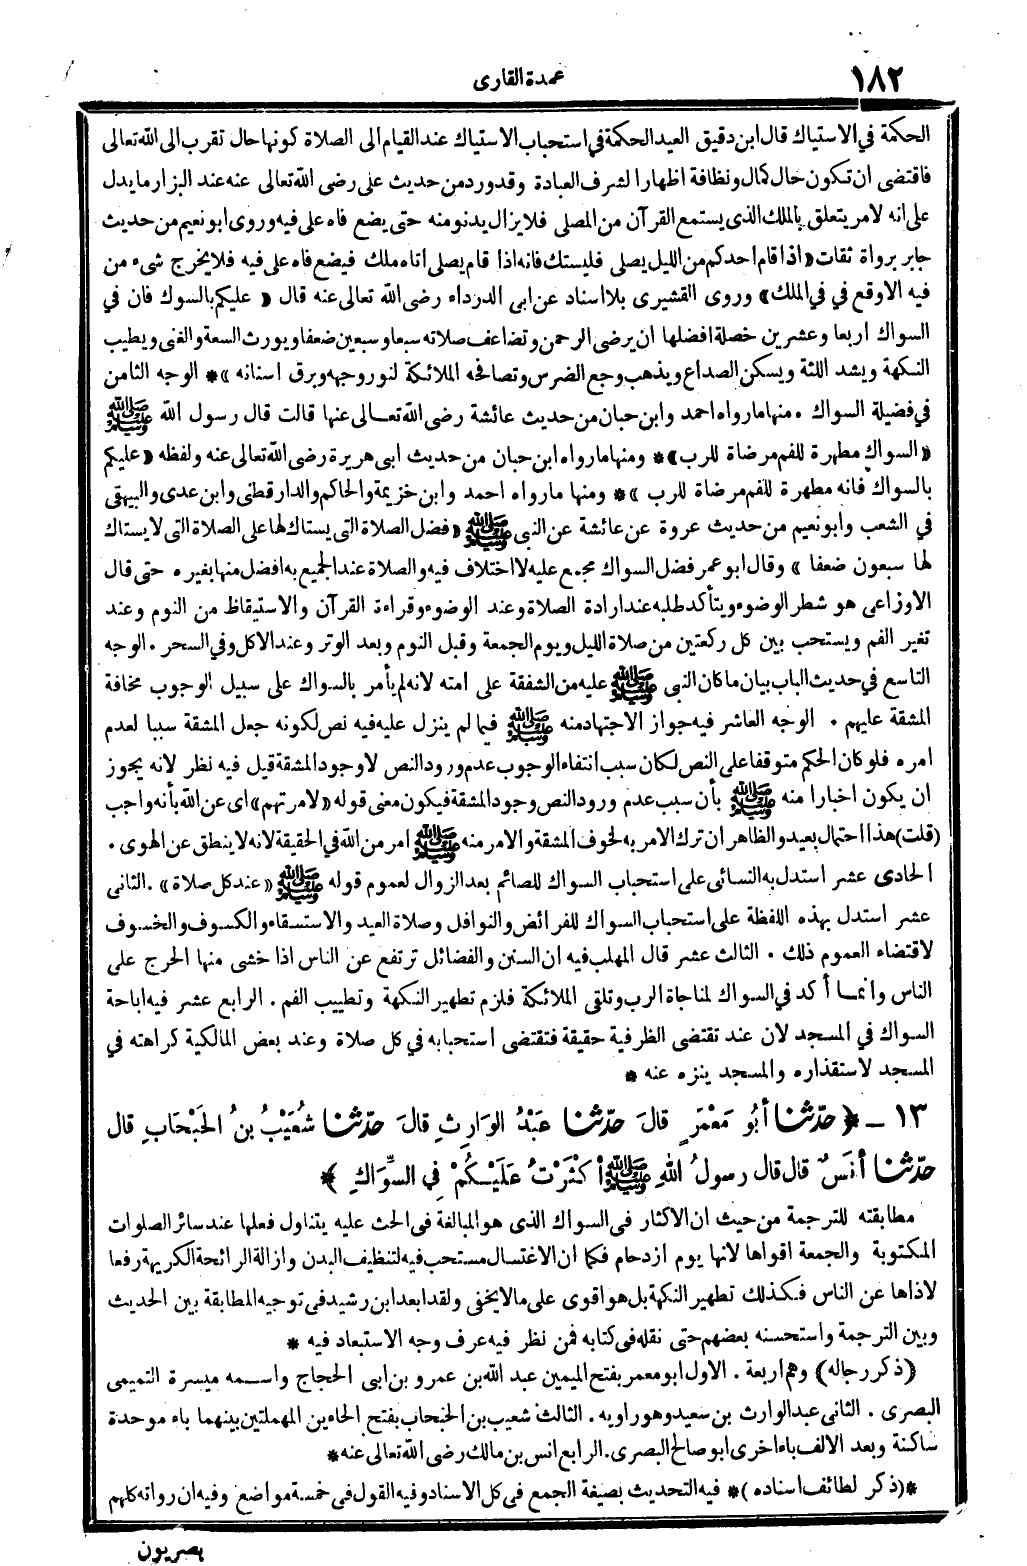 ١٨٢
عمدة القارى
الحكمة في الاستياك قال ابن دقيق العيد الحكمة في استحباب الاستياك عند القيام الى الصلاة كونها حال تقرب الى الله تعالى
فاقتضى ان تكون حال كمال ونظافة اظهارا لشرف العبادة وقد ورد من حديث على رضى الله تعالى عنه عند البزار ما يدل
على انه لامر يتعلق بالملك الذى يستمع القرآن من المصلى فلا يزال يدنو منه حتى يضع فاه على فيه وروى ابو نعيم من حديث
جابر برواة ثقات «اذا قام احدكم من الليل يصلى فليستك فانه اذا قام يصلى أتاه ملك فيضع فاه على فيه فلا يخرج شىء من
فيه الا وقع في في الملك» وروى القشيرى بلا اسناد عن ابى الدرداء رضى الله تعالى عنه قال « عليكم بالسواك فان في
السواك اربعا وعشرين خصلة افضلها ان يرضى الرحمن وتضاعف صلاته سبعا وسبعين ضعفا ويورث السعة والغنى ويطيب
النكهة ويشد اللثة ويسكن الصداع ويذهب وجع الضرس وتصافحه الملائكة لنور وجهه وبرق اسنانه »* الوجه الثامن
في فضيلة السواك . منها ما رواه احمد وابن حبان من حديث عائشة رضى الله تعـالى عنها قالت قال رسول الله ﷺ
«السواك مطهرة للفم مرضاة للرب»* ومنها ما رواه ابن حبان من حديث ابى هريرة رضى الله تعالى عنه ولفظه «عليكم
بالسواك فانه مطهرة للفم مرضاة للرب »* ومنها مارواه احمد وابن خزيمة والحاكم والدارقطنى وابن عدى والبيهقى
في الشعب وابو نعيم من حديث عروة عن عائشة عن النبى ﷺ «فضل الصلاة التى يستاك لها على الصلاة التى لا يستاك
لها سبعون ضعفا » وقال ابو عمر فضل السواك مجمع عليه لا اختلاف فيه والصلاة عند الجميع به افضل منها بغيره حتى قال
الاوزاعى هو شطر الوضوء ويتأكد طلبه عند ارادة الصلاة وعند الوضوء وقراءة القرآن والاستيقاظ من النوم وعند
تغير الفم ويستحب بين كل ركعتين من صلاة الليل ويوم الجمعة وقبل النوم وبعد الوتر وعند الاكل وفي السحر . الوجه
التاسع في حديث الباب بيان ما كان النبى ﷺ عليه من الشفقة على امته لانه لم يأمر بالسواك على سبيل الوجوب مخافة
المشقة عليهم . الوجه العاشر فيه جواز الاجتهاد منه ﷺ فيما لم ينزل عليه فيه نص لكونه جعل المشقة سببا لعدم
امره فلو كان الحكم متوقفا على النص لكان سبب انتفاء الوجوب عدم ورود النص لا وجود المشقة قيل فيه نظر لانه يجوز
ان يكون اخبارا منه ﷺ بأن سبب عدم ورود النص وجود المشقة فيكون معنى قوله «لامرتهم» اى عن الله بأنه واجب
(قلت) هذا احتمال بعيد والظاهر ان ترك الامر به لخوف المشقة والامر منه ﷺ امر من الله في الحقيقة لانه لا ينطق عن الهوى .
الحادى عشر استدل به النسائى على استحباب السواك للصائم بعد الزوال لعموم قوله ﷺ «عند كل صلاة» . الثانى
عشر استدل بهذه اللفظة على استحباب السواك للفرائض والنوافل وصلاة العيد والاستسقاء والكسوف والخسوف
لاقتضاء العموم ذلك . الثالث عشر قال المهلب فيه ان السنن والفضائل ترتفع عن الناس اذا خشى منها الحرج على
الناس وانمـا أكد في السواك لمناجاة الرب وتلقى الملائكة فلزم تطهير النكهة وتطييب الفم . الرابع عشر فيه اباحة
السواك في المسجد لان عند تقتضى الظرفية حقيقة فتقتضى استحبابه في كل صلاة وعند بعض المالكية كراهته في
المسجد لاستقذاره والمسجد ينزه عنه *
١٣ ـ ﴿ حدّثنا أبُو مَعْمَرٍ قالَ حدّثنا عَبْدُ الوَارِثِ قالَ حدّثنا شُعَيْبُ بنُ الحَبْحَابِ قال
حدّثنا أنَسٌ قال قال رسولُ اللهِ ﷺ أكْثَرْتُ عَلَيْـكُمْ فِي السِّوَاكِ ﴾*
مطابقته للترجمة من حيث ان الاكثار فى السواك الذى هو المبالغة فى الحث عليه يتناول فعلها عند سائر الصلوات
المكتوبة والجمعة اقواها لانها يوم ازدحام فكما ان الاغتسال مستحب فيه لتنظيف البدن وازالة الرائحة الكريهة رفعا
لاذاها عن الناس فكذلك تطهير النكهة بل هو اقوى على ما لا يخفى ولقد ابعد ابن رشيد فى توجيه المطابقة بين الحديث
وبين الترجمة واستحسنه بعضهم حتى نقله فى كتابه فمن نظر فيه عرف وجه الاستبعاد فيه *
(ذكر رجاله) وهم اربعة . الاول ابو معمر بفتح الميمين عبد الله بن عمرو بن ابى الحجاج واسـمه ميسرة التميمى
البصرى . الثانى عبد الوارث بن سعيد وهو راويه . الثالث شعيب بن الحبحاب بفتح الحاءين المهملتين بينهما باء موحدة
ساكنة وبعد الالف باء اخرى ابو صالح البصرى . الرابع انس بن مالك رضى الله تعالى عنه*
*(ذكر لطائف اسناده )* فيه التحديث بصيغة الجمع فى كل الاسناد وفيه القول فى خمسة مواضع وفيه ان رواته كلهم
بصريون